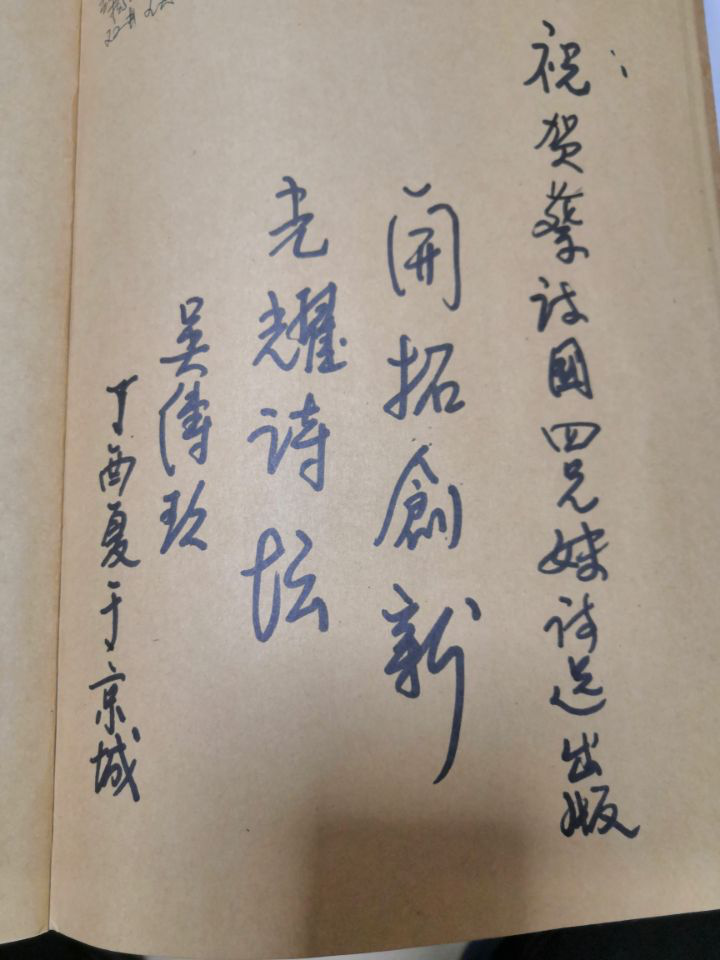 祝贺蔡诗國四兄妹诗选出版
開拓創新
光耀诗坛
吴傳玖
丁酉夏于京城